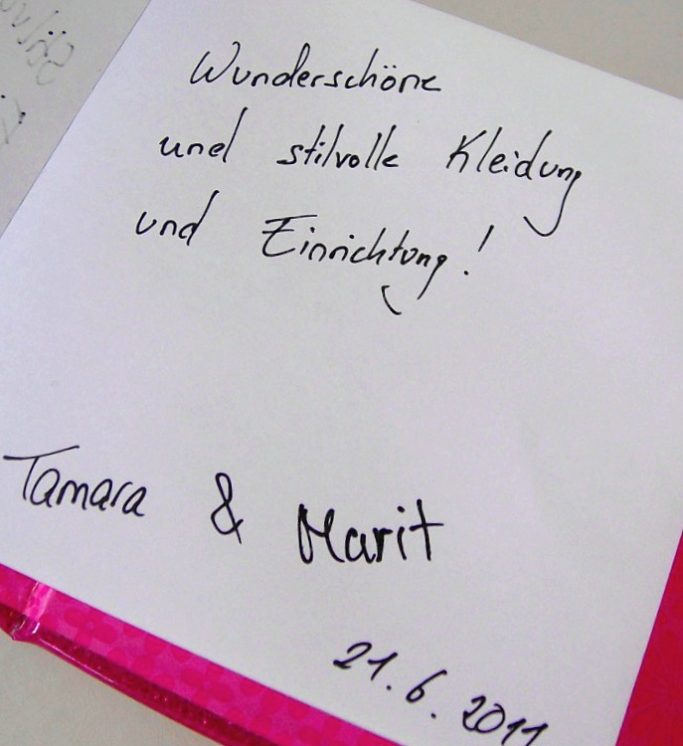 Wunderschöne
und stilvolle Kleidung
und Einrichtung!
Tamara & Marit
21.6.2011